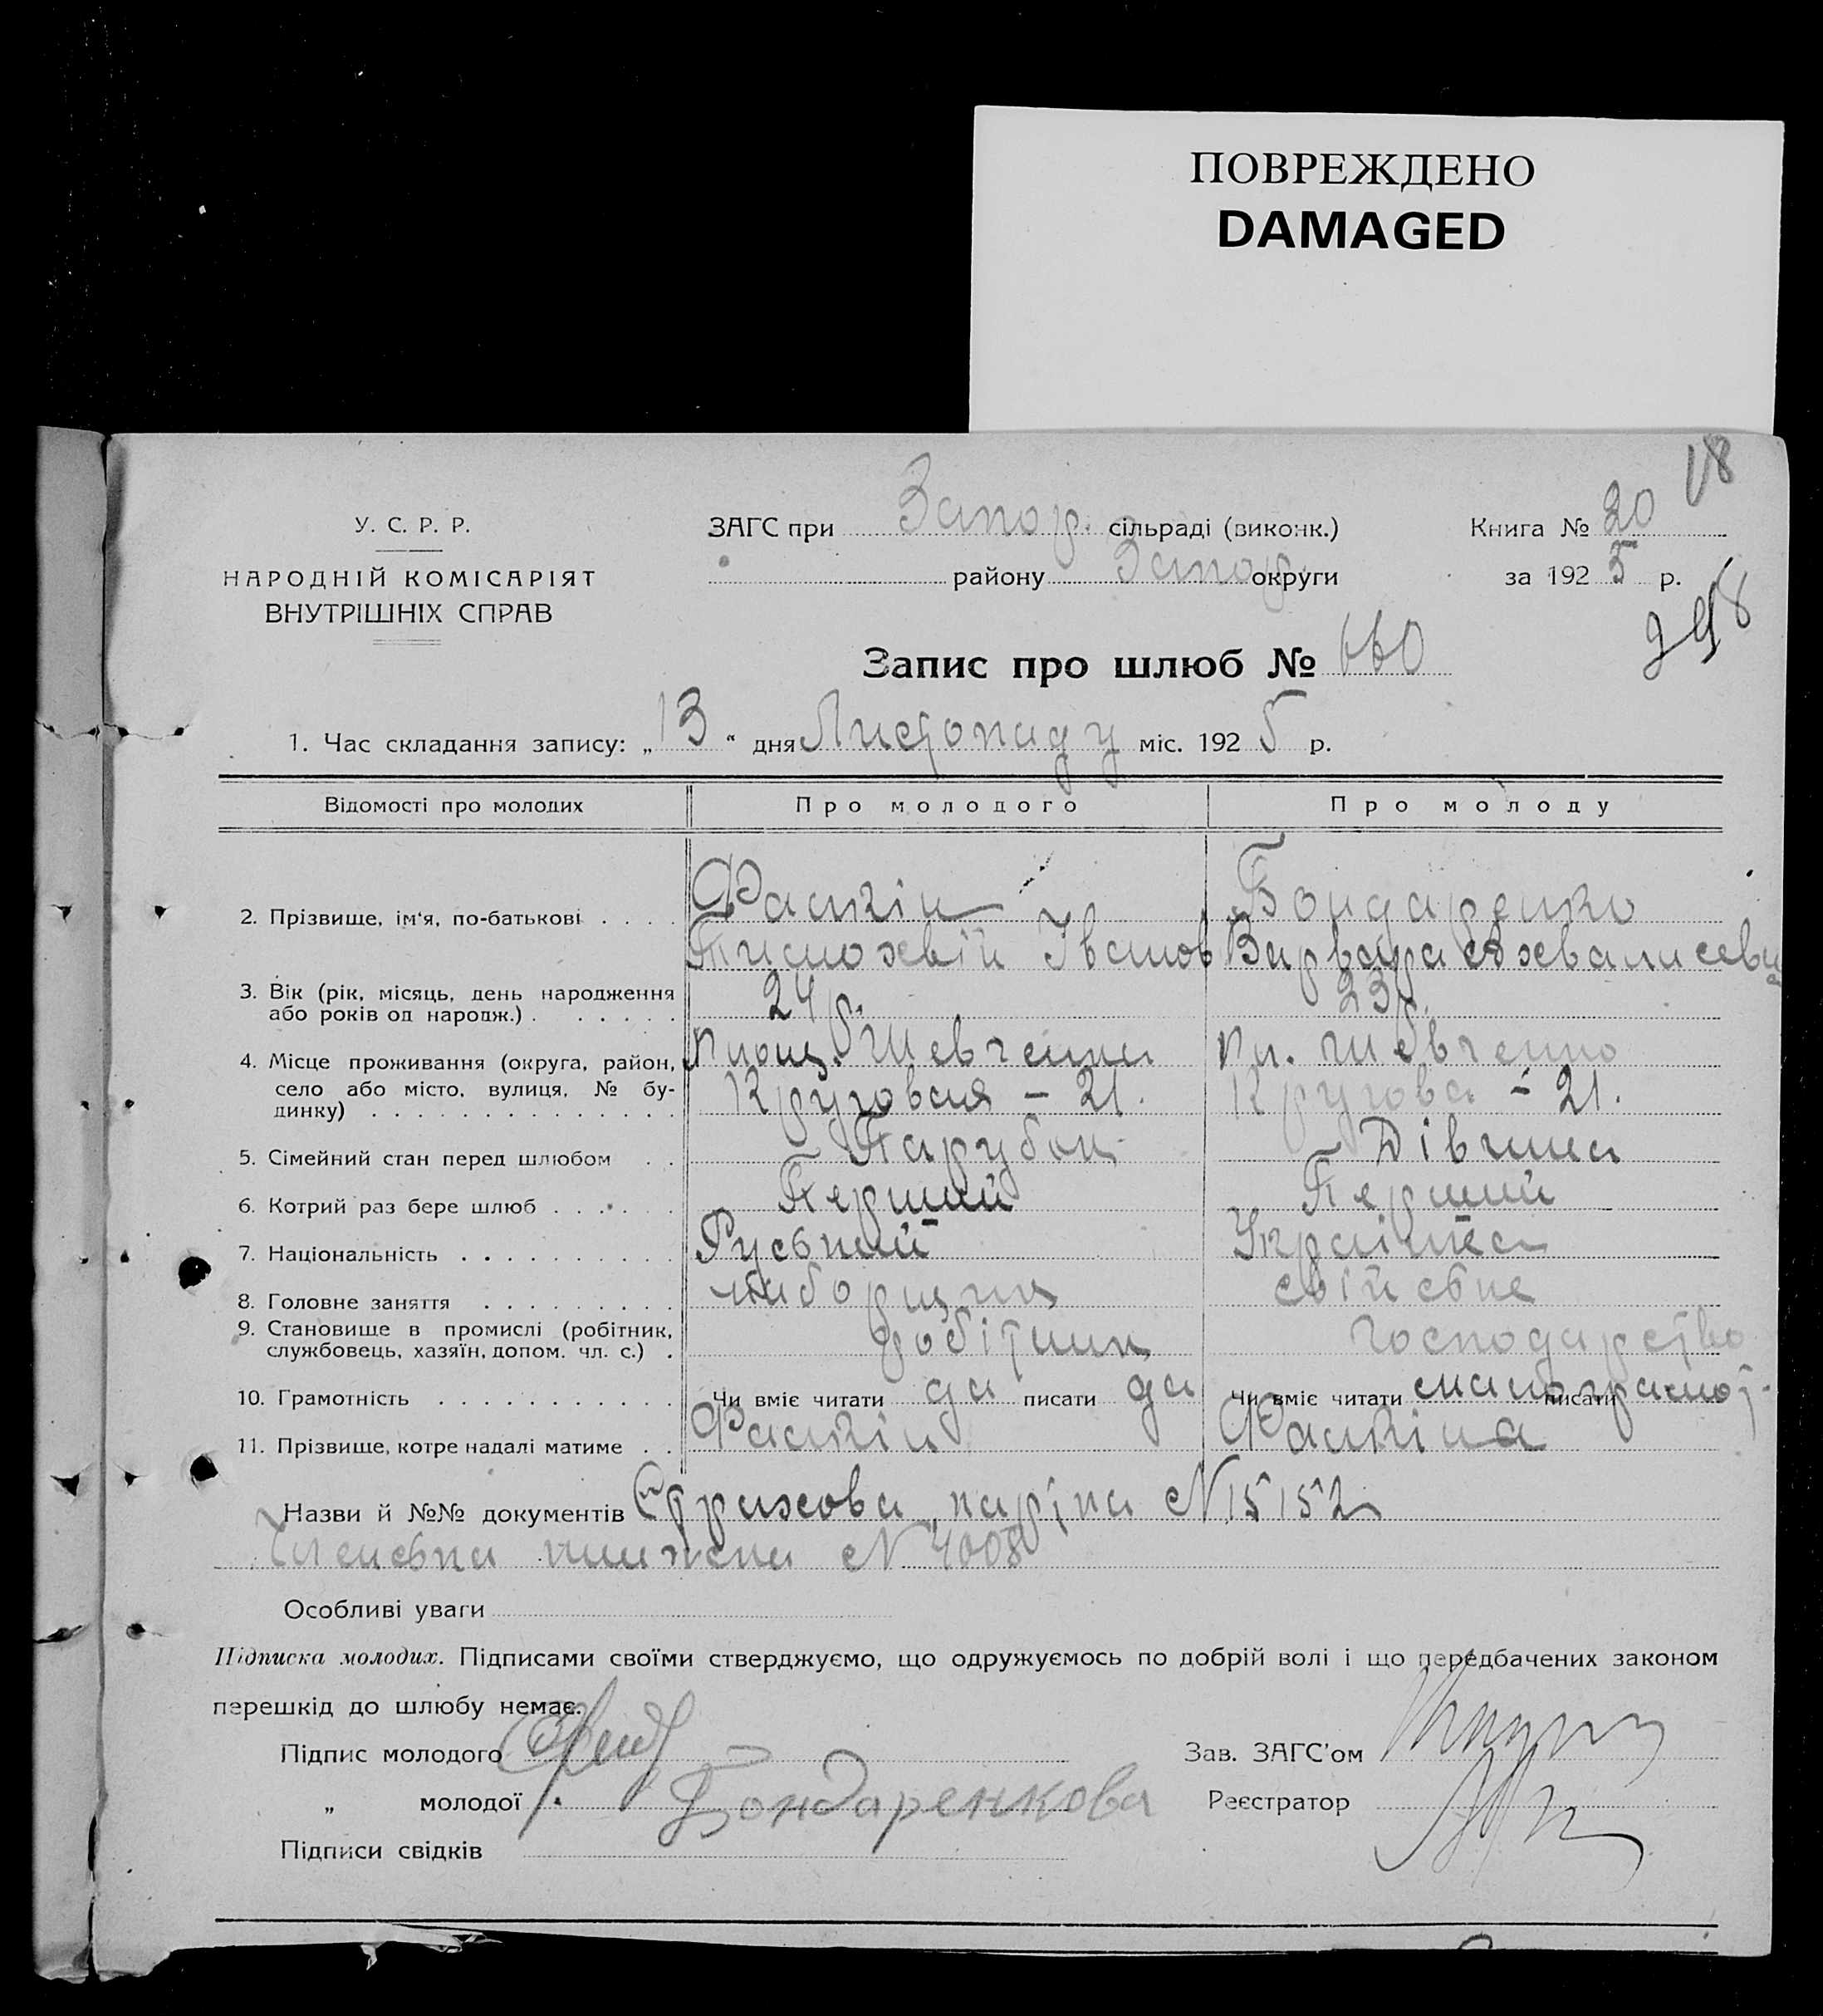 ПОВРЕЖДЕНО
DAMAGED
18
У. С. Р. Р.
НАРОДНІЙ КОМІСАРІЯТ
ВНУТРІШНІХ СПРАВ
ЗАГС при Запор. сільраді (виконк.)
району Запор. округи
Книга № 20
за 1925 р.
298
Запис про шлюб № 660
1. Час складання запису: „13“ дня Листопаду міс. 1925 р.
Відомості про молодих Про молодого Про молоду
2. Прізвище, ім'я, по-батькові . . . . Фанкін Бондаренко
Тимохвій Іванов Варвара
3. Вік (рік, місяць, день народження
або років од народж.) . . . . . . 24 р. 23 р.
4. Місце проживання (округа, район,
село або місто, вулиця, № бу-
динку) . . . . . . . . . . . . . .
площ. Шевченка пл. Шевченко
Круговая – 21. Кругова – 21.
5. Сімейний стан перед шлюбом . . Парубок Дівчина
6. Котрий раз бере шлюб . . . . . . Перший Перший
7. Національність . . . . . . . . . . Руський Українка
8. Головне заняття . . . . . . . . . наборщик свійське
9. Становище в промислі (робітник,
службовець, хазяїн, допом. чл. с.) . робітник господарство
10. Грамотність . . . . . . . . . . . Чи вміє читати да писати да Чи вміє читати малограмот. писати
11. Прізвище, котре надалі матиме . . Фанкін Фанкіна
Назви й №№ документів Страхова картка N 15152
Членська книжка N 4008
Особливі уваги
Підписка молодих. Підписами своїми стверджуємо, що одружуємось по добрій волі і що передбачених законом
перешкід до шлюбу немає.
Підпис молодого Зав. ЗАГС'ом
„ молодої Бондаренкова Реєстратор
Підписи свідків